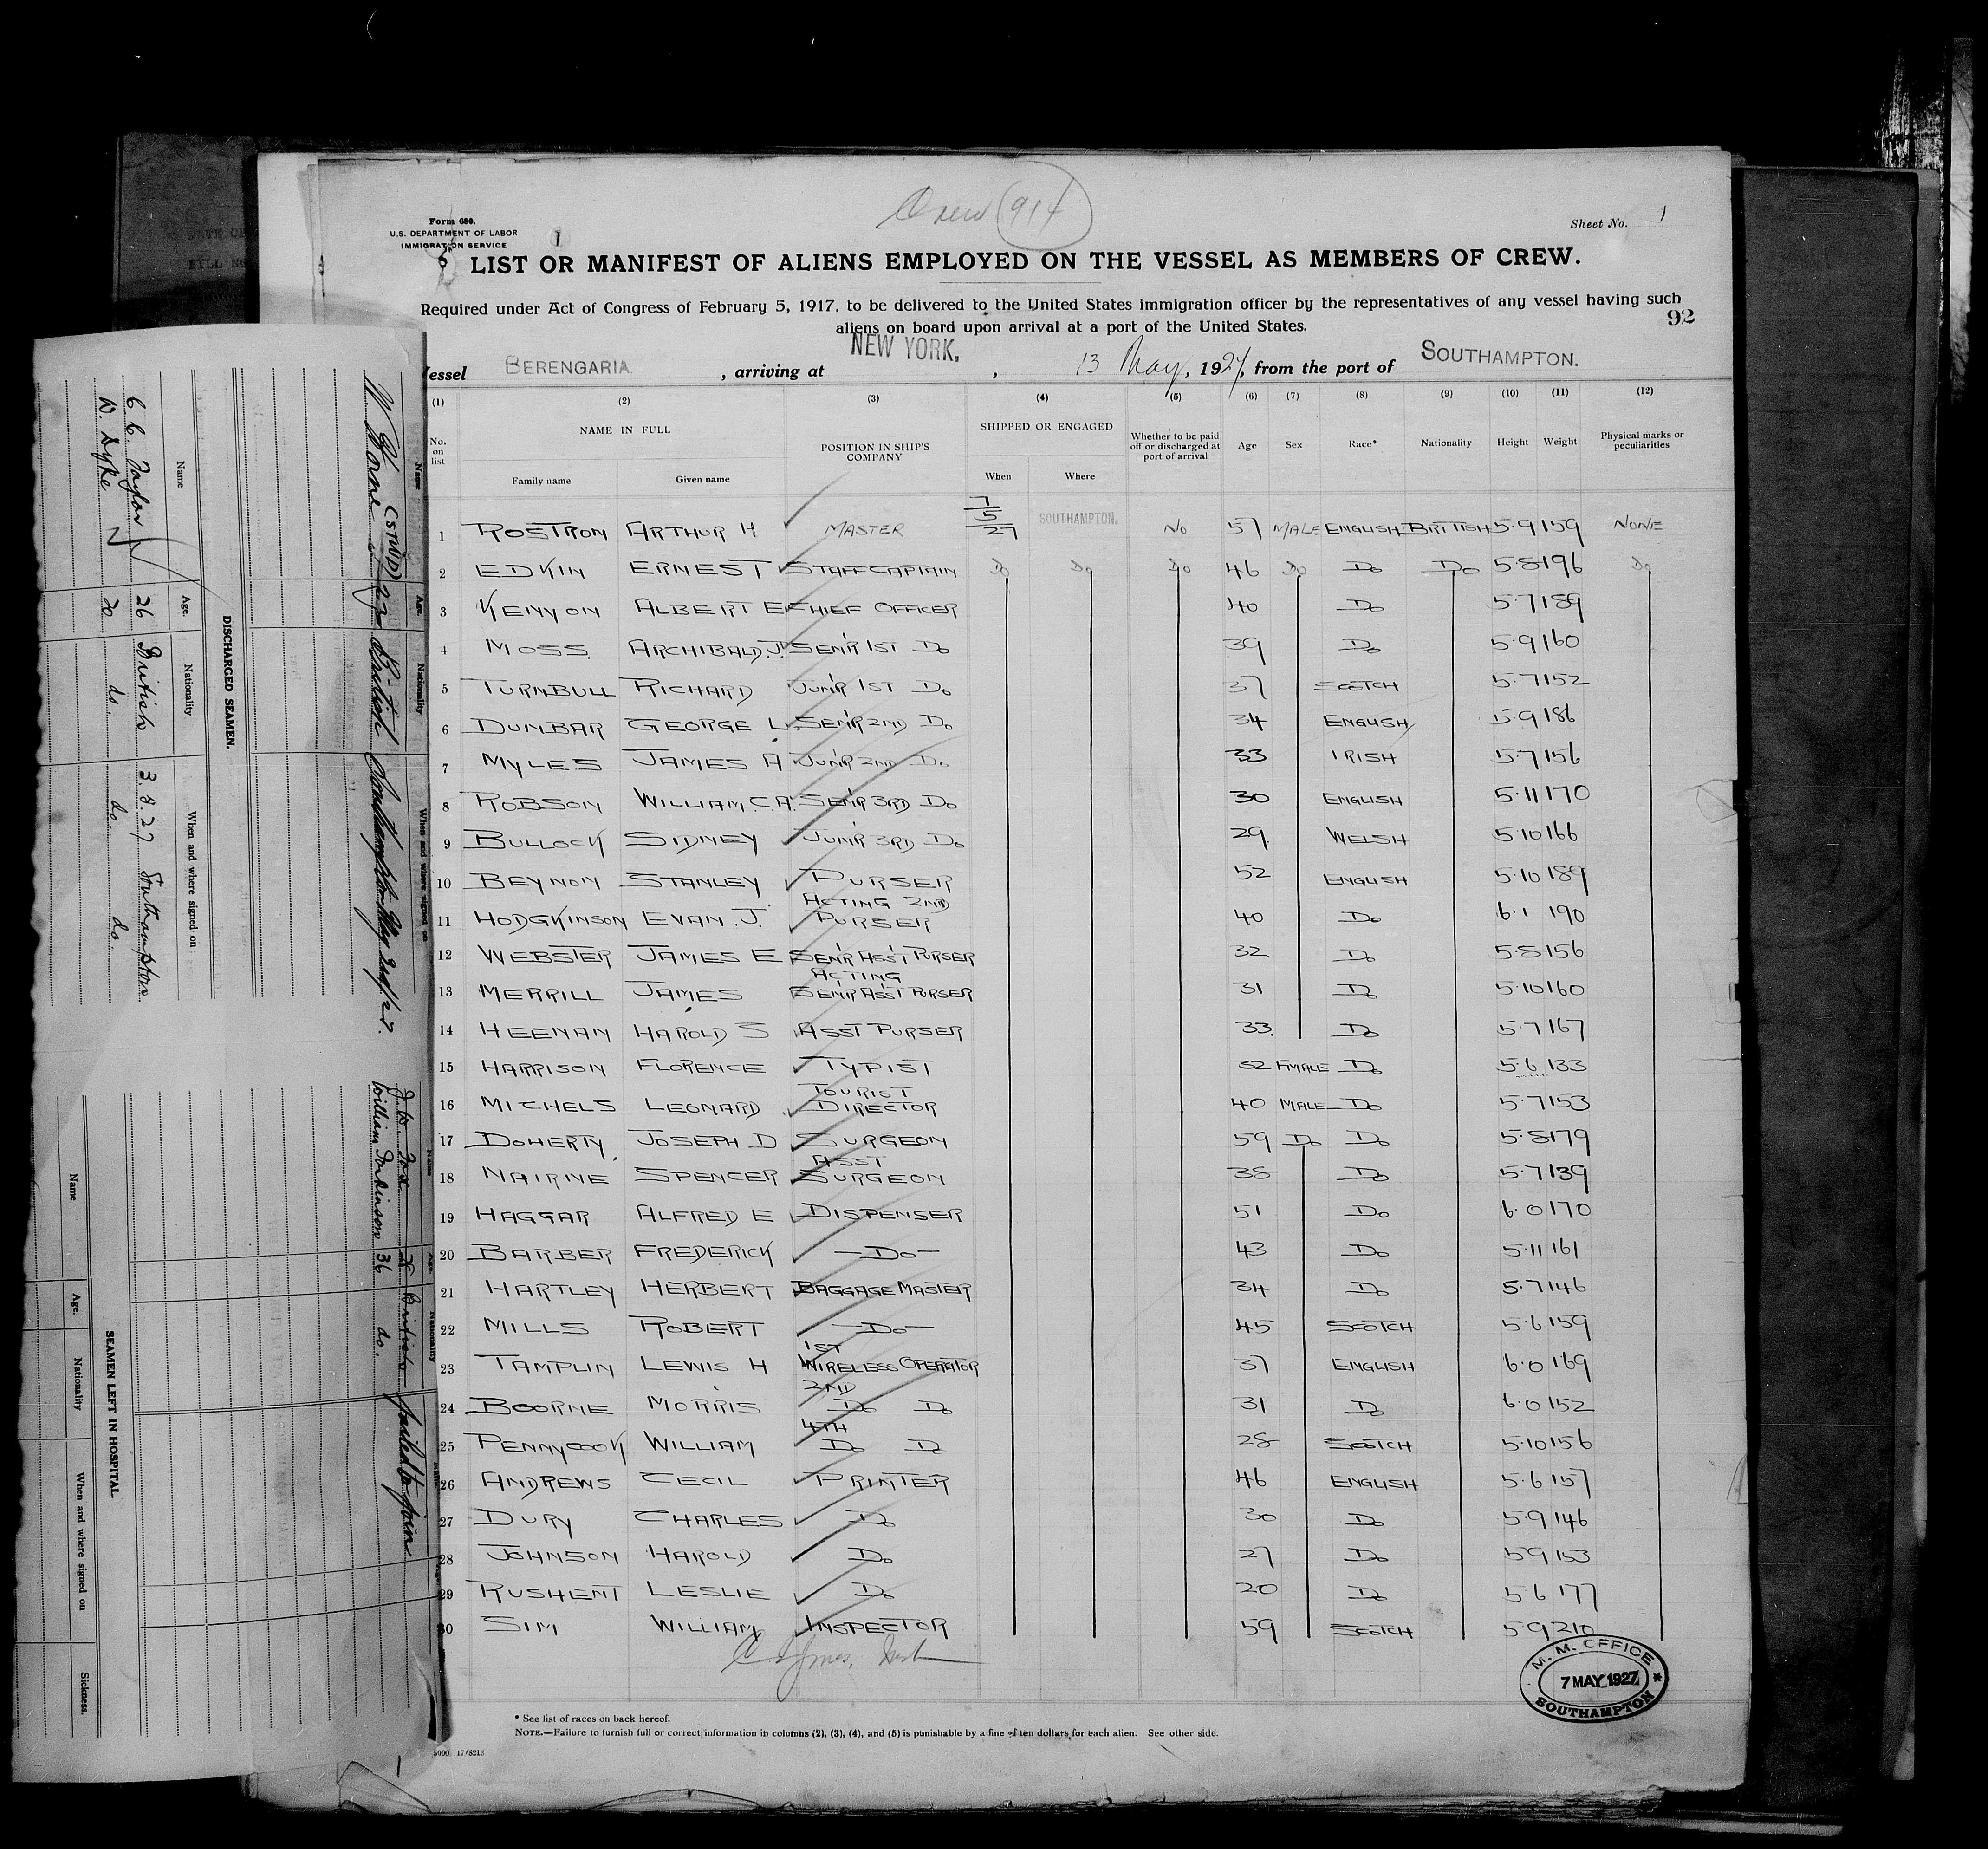 Crew 914
Form 680.
U.S. DEPARTMENT OF LABOR
IMMIGRATION SERVICE
Sheet No. 1
LIST OR MANIFEST OF ALIENS EMPLOYED ON THE VESSEL AS MEMBERS OF CREW.
Required under Act of Congress of February 5, 1917, to be delivered to the United States immigration officer by the representatives of any vessel having such
aliens on board upon arrival at a port of the United States.
92
Vessel BERENGARIA, arriving at NEW YORK., 13 May, 1927, from the port of SOUTHAMPTON.
(1) (2) (3) (4) (5) (6) (7) (8) (9) (10) (11) (12)
No. on list NAME IN FULL Family name Given name POSITION IN SHIP'S COMPANY SHIPPED OR ENGAGED When Where Whether to be paid off or discharged at port of arrival Age Sex Race* Nationality Height Weight Physical marks or peculiarities
1 ROSTRON ARTHUR H MASTER 7/5/27 SOUTHAMPTON. NO 57 MALE ENGLISH BRITISH 5·9 159 NONE
2 EDKIN ERNEST STAFF CAPTAIN DO DO DO 46 DO DO DO 5·8 196 DO
3 KENYON ALBERT E CHIEF OFFICER 40 DO 5·7 189
4 MOSS ARCHIBALD.J. SENR 1ST DO 39 DO 5·9 160
5 TURNBULL RICHARD JUNR 1ST DO 37 SCOTCH 5·7 152
6 DUNBAR GEORGE L. SENR 2ND DO 34 ENGLISH 5·9 186
7 MYLES JAMES A JUNR 2ND DO 33 IRISH 5·7 156
8 ROBSON WILLIAM C.A. SENR 3RD DO 30 ENGLISH 5·11 170
9 BULLOCK SIDNEY JUNR 3RD DO 29. WELSH 5·10 166
10 BEYNON STANLEY PURSER 52 ENGLISH 5·10 189
11 HODGKINSON EVAN. J. ACTING 2ND PURSER 40 DO 6·1 190
12 WEBSTER JAMES E SENR ASST PURSER 32 DO 5·8 156
13 MERRILL JAMES ACTING SENR ASST PURSER 31 DO 5·10 160
14 HEENAN HAROLD S ASST PURSER 33. DO 5·7 167
15 HARRISON FLORENCE TYPIST 32 FMALE DO 5·6 133
16 MICHELS LEONARD TOURIST DIRECTOR 40 MALE DO 5·7 153
17 DOHERTY JOSEPH D SURGEON 59 DO DO 5·8 179
18 NAIRNE SPENCER ASST SURGEON 38 DO 5·7 139
19 HAGGAR ALFRED E DISPENSER 51 DO 6·0 170
20 BARBER FREDERICK —DO— 43 DO 5·11 161
21 HARTLEY HERBERT BAGGAGE MASTER 34 DO 5·7 146
22 MILLS ROBERT —DO— 45 SCOTCH 5·6 159
23 TAMPLIN LEWIS H 1ST WIRELESS OPERATOR 37 ENGLISH 6·0 169
24 BOORNE MORRIS 2ND DO DO 31 DO 6·0 152
25 PENNYCOOK WILLIAM 4TH DO DO 28 SCOTCH 5·10 156
26 ANDREWS CECIL PRINTER 46 ENGLISH 5·6 157
27 DURY CHARLES DO 30 DO 5·9 146
28 JOHNSON HAROLD DO 27 DO 5·9 153
29 RUSHENT LESLIE DO 20 DO 5·6 177
30 SIM WILLIAM INSPECTOR 59 SCOTCH 5·9 210
M. M. OFFICE
7 MAY 1927
SOUTHAMPTON
* See list of races on back hereof.
NOTE.—Failure to furnish full or correct information in columns (2), (3), (4), and (5) is punishable by a fine of ten dollars for each alien. See other side.
5000 17/8213
Name Age. Nationality When and where signed on
W Horne (STWD) 27 British Southampton May 2nd/27.
DISCHARGED SEAMEN.
Name Age. Nationality When and where signed on
C. C. Taylor 26 British 3.8.27 Southampton
W. Dyke 20 do. do. do.
Name Age. Nationality
J. W. Fox 28 British failed to join
William Parkinson 36 do.
SEAMEN LEFT IN HOSPITAL.
Name Age. Nationality When and where signed on Sickness.